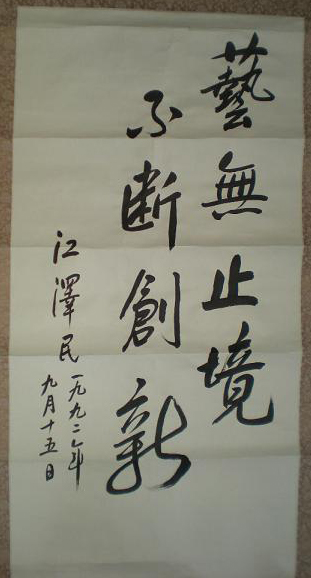 藝無止境
不断創新
江澤民
一九九二年
九月十五日